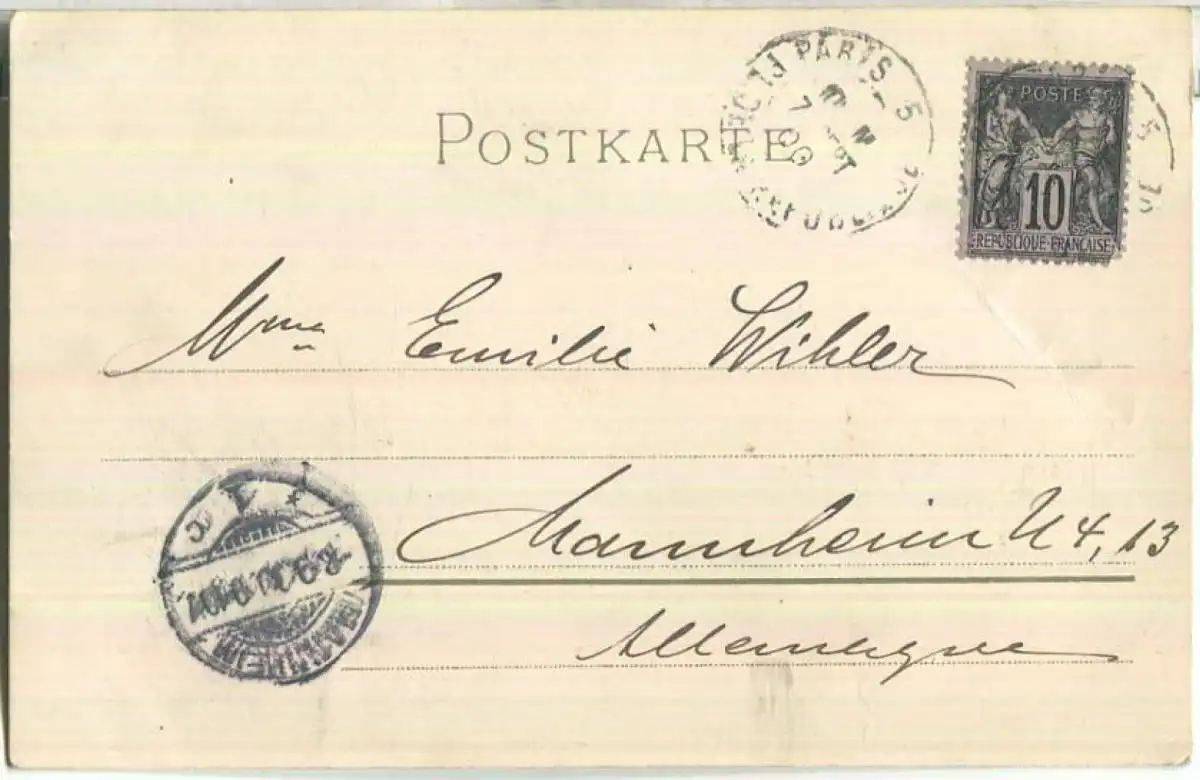 POSTKARTE
PARIS 5
POSTES
10
REPUBLIQUE FRANÇAISE
Mme Emilie Wihler
Mannheim U 4, 13
Allemagne
MANNHEIM